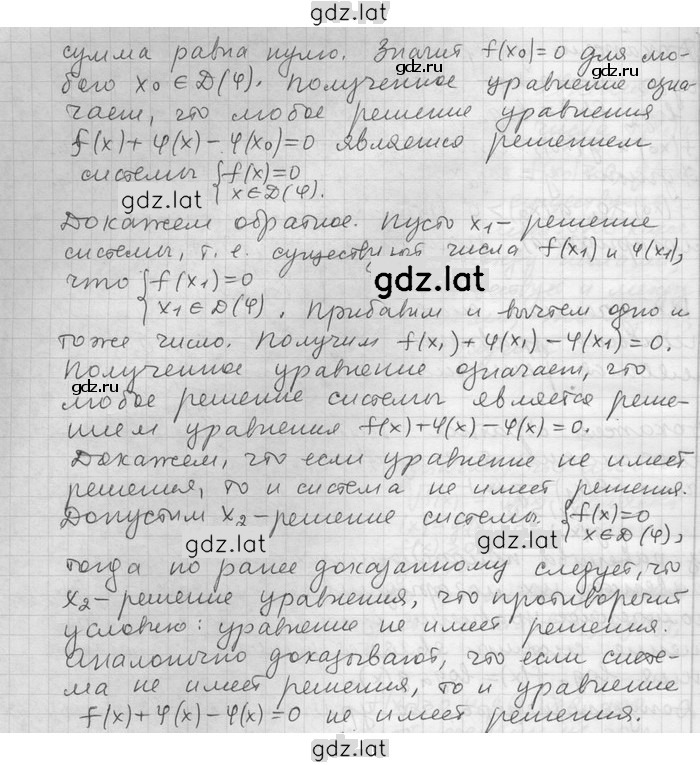 gdz.lat
сумма равна нулю. Значит, f(x₀)=0 для лю-
gdz.lat
gdz.lat
бого x₀ ∈ D(φ). Полученное уравнение озна-
чает, что любое решение уравнения
gdz.lat
f(x)+φ(x)-φ(x₀)=0 является решением
системы { f(x)=0
x∈D(φ).
gdz.lat
Докажем обратное. Пусть x₁-решение
системы, т.е. существуют числа f(x₁) и φ(x₁),
что { f(x₁)=0
gdz.lat
x₁∈D(φ). Прибавим и вычтем одно и
тоже число. Получим f(x₁)+φ(x₁)-φ(x₁)=0.
Полученное уравнение означает, что
gdz.lat
любое решение системы является реше-
нием уравнения f(x)+φ(x)-φ(x)=0.
Докажем, что если уравнение не имеет
решения, то и система не имеет решения.
Допустим x₂-решение системы { f(x)=0
x∈D(φ),
gdz.lat
gdz.lat
тогда по ранее доказанному следует, что
x₂-решение уравнения, что противоречит
условию: уравнение не имеет решения.
Аналогично доказывают, что если систе-
ма не имеет решения, то и уравнение
f(x)+φ(x)-φ(x)=0 не имеет решения.
gdz.lat